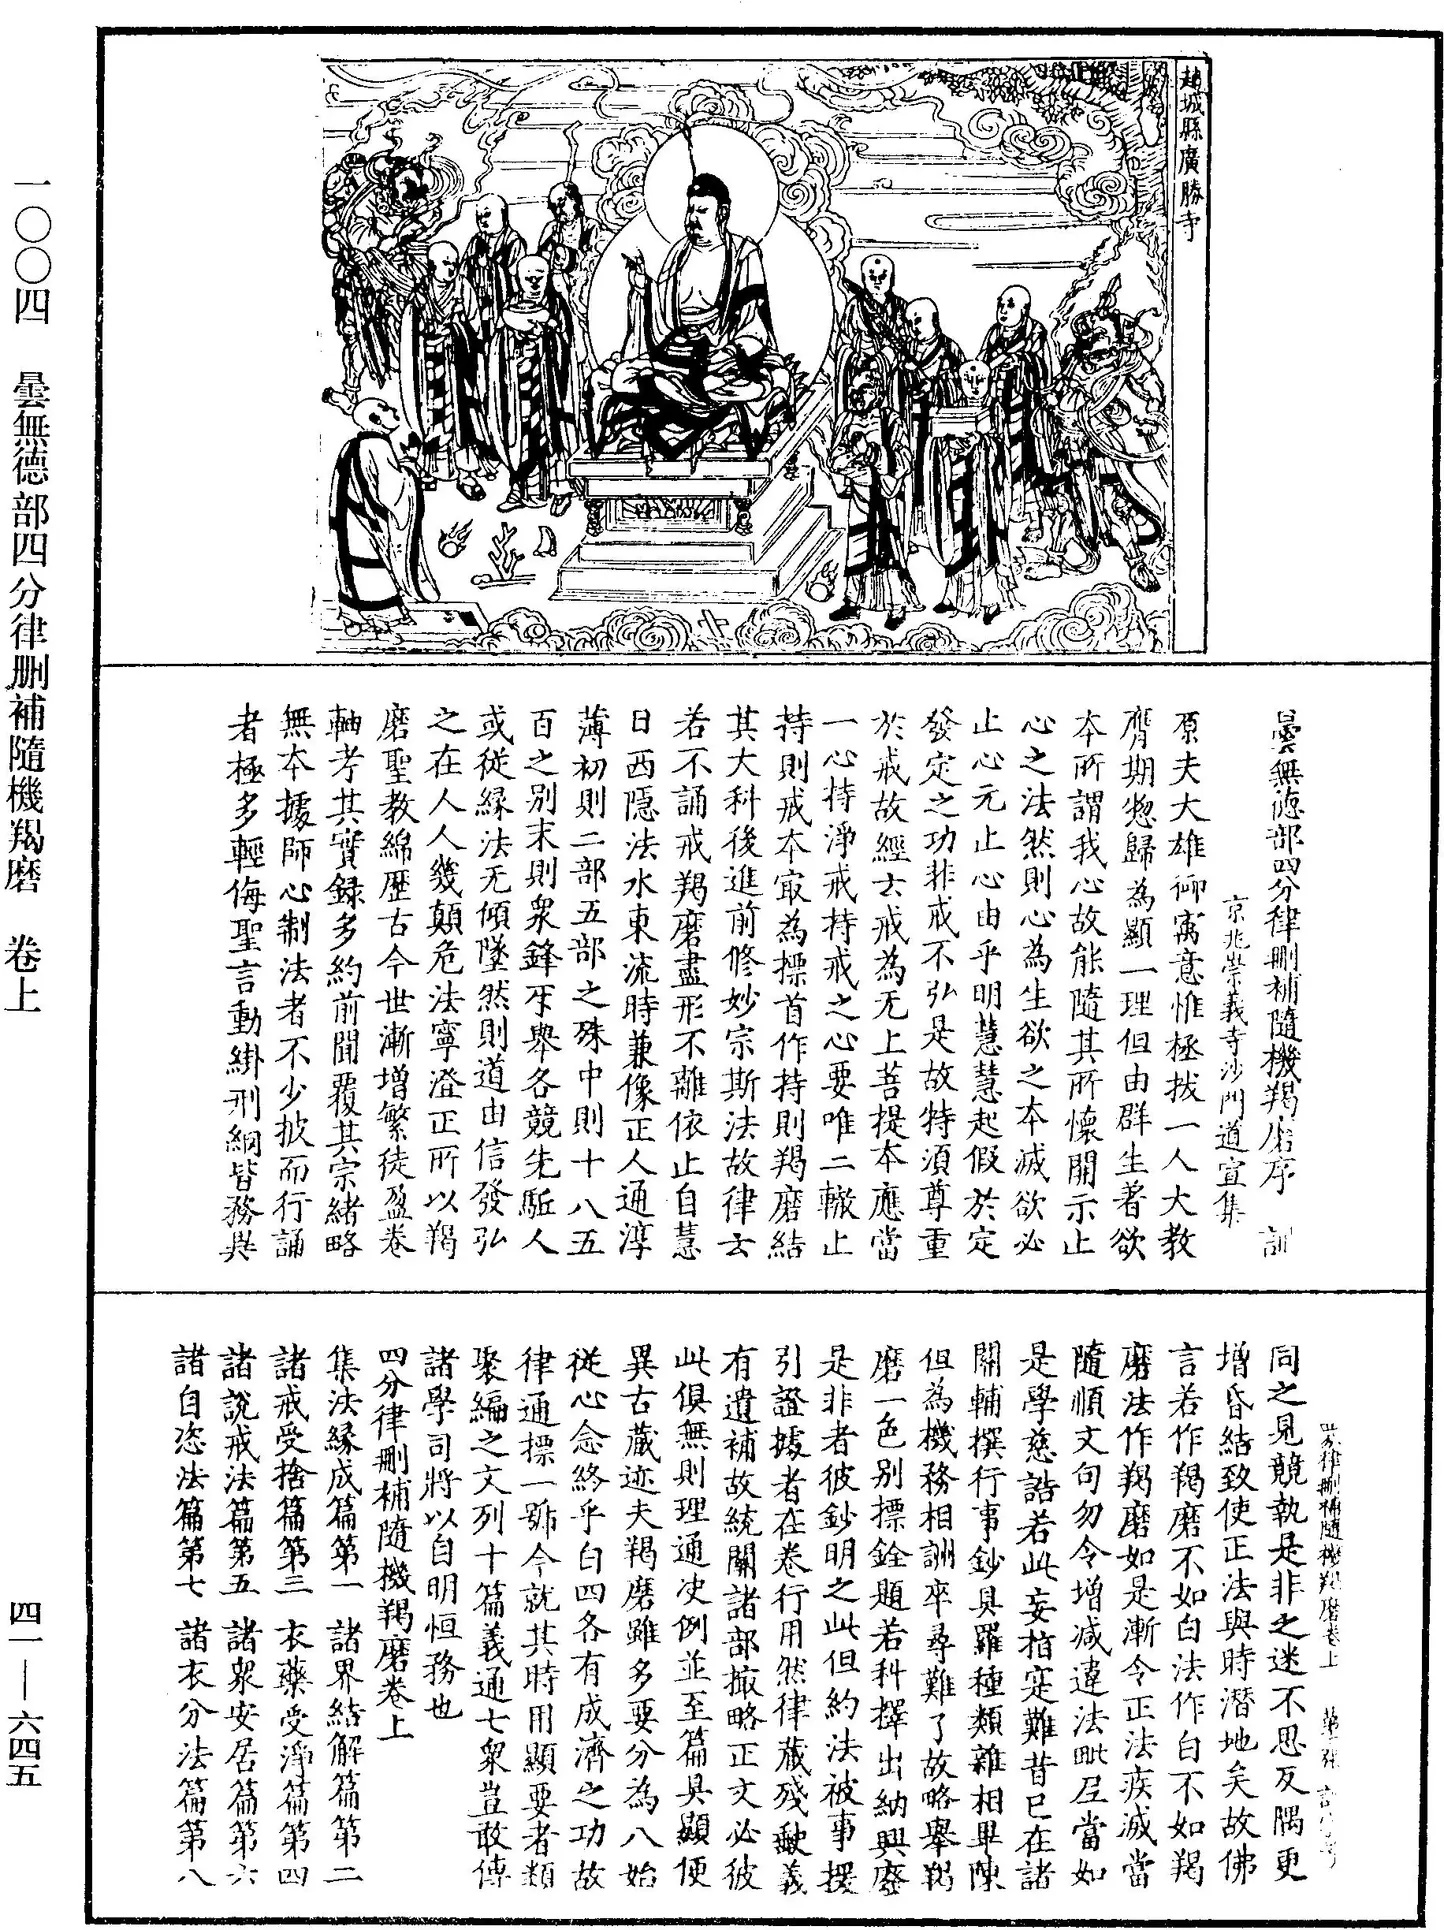 趙城縣廣勝寺
曇無德部四分律刪補隨機羯磨序　訓
京兆崇義寺沙門道宣集
原夫大雄御寓意惟拯拔一人大教
膺期惣歸為顯一理但由群生著欲
本所謂我心故能隨其所懷開示止
心之法然則心為生欲之本滅欲必
止心元止心由乎明慧慧起假於定
發定之功非戒不弘是故特須尊重
於戒故經云戒為无上菩提本應當
一心持淨戒持戒之心要唯二轍止
持則戒本冣為標首作持則羯磨結
其大科後進前修妙宗斯法故律云
若不誦戒羯磨盡形不離依止自慧
日西隱法水東流時兼像正人通淳
薄初則二部五部之殊中則十八五
百之別末則衆鋒㸦舉各競先駈人
或從緣法无傾墜然則道由信發弘
之在人人幾顛危法寧澄正所以羯
磨聖教綿歷古今世漸增繁徒盈卷
軸考其實錄多約前聞覆其宗緒略
無本據師心制法者不少披而行誦
者極多輕侮聖言動掛刑網皆務異
四分律刪補隨機羯磨卷上
同之見競執是非之迷不思反隅更
增昏結致使正法與時潛地矣故佛
言若作羯磨不如白法作白不如羯
磨法作羯磨如是漸令正法疾滅當
隨順文句勿令增減違法毗尼當如
是學慈誥若此妄指寔難昔已在諸
關輔撰行事鈔具羅種類雜相畢陳
但為機務相詶卒尋難了故略舉羯
磨一色別標銓題若科擇出納興廢
是非者彼鈔明之此但約法被事援
引證據者在卷行用然律藏殘缺義
有遺補故統關諸部撮略正文必彼
此俱無則理通決例並至篇具顯便
異古藏迹夫羯磨雖多要分為八始
從心念終乎白四各有成濟之功故
律通標一號今就其時用顯要者類
聚編之文列十篇義通七衆豈敢傳
諸學司將以自明恒務也
四分律刪補隨機羯磨卷上
集法緣成篇第一　諸界結解篇第二
諸戒受捨篇第三　衣藥受淨篇第四
諸說戒法篇第五　諸衆安居篇第六
諸自恣法篇第七　諸衣分法篇第八
一〇〇四　曇無德部四分律刪補隨機羯磨　卷上
四一—六四五